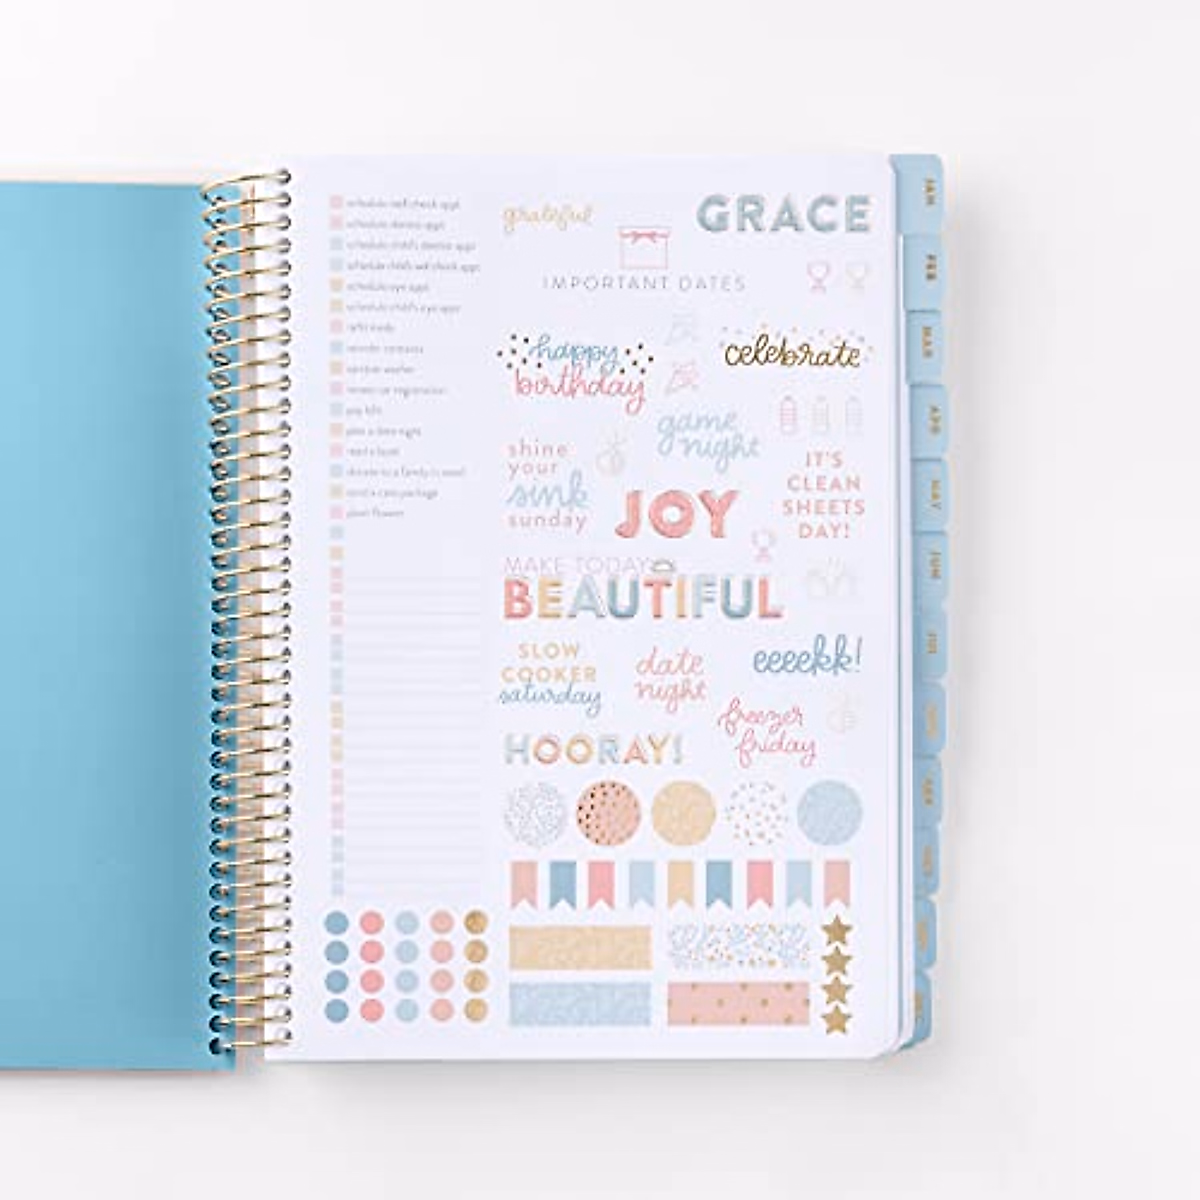 schedule well check appt
schedule dentist appt
schedule child's dentist appt
schedule child's well check appt
schedule eye appt
schedule child's eye appt
refill meds
reorder contacts
pay bills
plan a date night
read a book
donate to a family in need
send a care package
plant flowers
grateful
GRACE
IMPORTANT DATES
happy
birthday
celebrate
game
night
shine
your
sink
sunday
JOY
IT'S
CLEAN
SHEETS
DAY!
MAKE TODAY
BEAUTIFUL
SLOW
COOKER
saturday
date
night
eeeekk!
freezer
friday
HOORAY!
JAN
FEB
MAR
APR
MAY
JUN
JUL